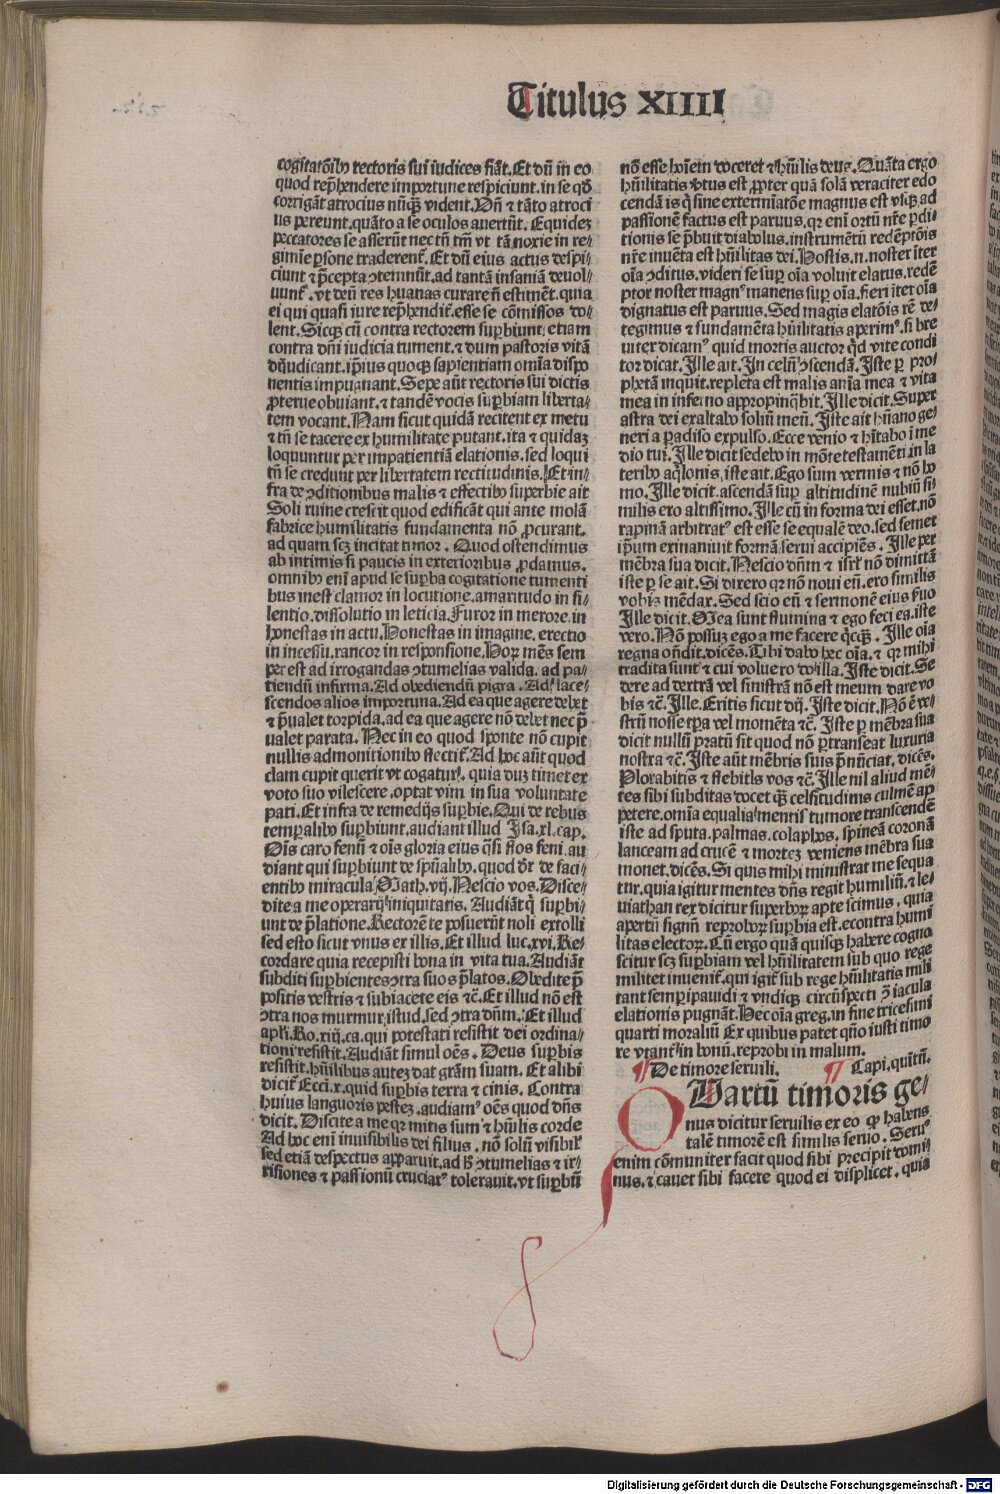 Titulus XIIII
cogitatōibꝰ rectoris sui iudices fiāt. Et dū in eo
quod rep̄hendere importune respiciunt. in se qđ
corrigāt atrocius nūq̄ꝫ vident. Dn̄ ⁊ tāto atroci
us pereunt. quāto a se oculos auertūt. Equideꝫ
peccatores se asserūt nec tn̄ tm̄ vt tā noxie in re⸗
gimīe ꝑsone traderent̄. Et dū eius actus despi⸗
ciunt ⁊ p̄cepta ꝯtemnūt. ad tantā insaniā deuol⸗
uunt̄. vt deū res huānas curare n̄ estimēt. quia
ei qui quasi iure rep̄hendit̄. esse se cōmissos do⸗
lent. Sicqꝫ cū contra rectorem suꝑbiunt. etiam
contra dn̄i iudicia tument. ⁊ dum pastoris vitā
dijudicant. ip̄ius quoqꝫ sapientiam om̄ia dispo
nentis impugnant. Sepe aūt rectoris sui dictis
ꝓterue obuiant. ⁊ tandē vocis suꝑbiam liberta⸗
tem vocant. Nam sicut quidā recitent ex metu
⁊ tn̄ se tacere ex humilitate putant. ita ⁊ quidaꝫ
loquuntur per impatientiā elationis. sed loqui
tn̄ se credunt per libertatem rectitudinis. Et in⸗
fra de ꝯditionibus malis ⁊ effectibꝰ superbie ait
Soli ruine crescit quod edificāt qui ante molā
fabrice humilitatis fundamenta nō ꝓcurant.
ad quam scꝫ incitat timor. Quod ostendimus
ab intimis si paucis in exterioribus ꝓdamus.
omnibꝰ enī apud se suꝑba cogitatione tumenti
bus inest clamor in locutione. amaritudo in si⸗
lentio. dissolutio in leticia. Furor in merore. in
honestas in actu. Honestas in imagine. erectio
in incessu. rancor in responsione. Hoꝝ mēs sem
per est ad irrogandas ꝯtumelias valida. ad pa⸗
tiendū infirma. Ad obediendū pigra. Ad lace⸗
scendos alios importuna. Ad ea que agere debet
⁊ p̄ualet torpida. ad ea que agere nō debet nec p̄
ualet parata. Nec in eo quod sponte nō cupit
nullis admonitionibꝰ flectit̄. Ad hoc aūt quod
clam cupit querit vt cogatur. quia duꝫ timet ex
voto suo vilescere. optat vim in sua voluntate
pati. Et infra de remedijs suꝑbie. Qui de rebus
temꝑalibꝰ suꝑbiunt. audiant illud Isa. xl. cap.
Oīs caro fenū ⁊ oīs gloria eius q̄si flos feni au
diant qui suꝑbiunt de spūalibꝰ. quod dr̄ de faci⸗
entibꝰ miracula Math. vij. Nescio vos. Disce⸗
dite a me operarij iniquitatis. Audiāt q̄ suꝑbi⸗
unt de p̄latione. Rectorē te posuerūt noli extolli
sed esto sicut vnus ex illis. Et illud luc. xvi. Re⸗
cordare quia recepisti bona in vita tua. Audiāt
subditi suꝑbientes ꝯtra suos p̄latos. Obedite p̄
positis vestris ⁊ subiacete eis ⁊c̄. Et illud nō est
ꝯtra nos murmur istud. sed ꝯtra dn̄m. Et illud
apl̄i. Ro. xiij. ca. qui potestati resistit dei ordina⸗
tioni resistit. Audiāt simul oēs. Deus suꝑbis
resistit. hūilibus auteꝫ dat grām suam. Et alibi
dicit̄ Ecc̄i. x. quid suꝑbis terra ⁊ cinis. Contra
huius languoris pesteꝫ. audiamꝰ oēs quod dn̄s
dicit. Discite a me qꝛ mitis sum ⁊ hūilis corde
Ad hoc enī inuisibilis dei filius. nō solū visibil̓
sed etiā despectus apparuit. ad hꝰ ꝯtumelias ⁊ ir⸗
risiones ⁊ passionū cruciatꝰ tolerauit. vt suꝑbū
nō esse hoīem doceret ⁊ hūilis deus. Quāta ergo
hūilitatis v̓tus est ꝓpter quā solā veraciter edo
cendā is q̄ sine exterminatōe magnus est vsqꝫ ad
passionē factus est paruus. qꝛ enī ortū nr̄e ꝑdi⸗
tionis se p̄buit diabolus. instrumētū redēptōis
nr̄e inuēta est hūilitas dei. Hostis. n. noster īter
oīa ꝯditus. videri se suꝑ oīa voluit elatus. redē
ptor noster magnꝰ manens suꝑ oīa. fieri īter oīa
dignatus est paruus. Sed magis elatōis rē de⸗
tegimus ⁊ fundamēta hūilitatis aperimꝰ. si bre
uiter dicamꝰ quid mortis auctor qđ vite condi
tor dicat. Ille ait. In celū ꝯscendā. Iste ꝑ pro⸗
phetā inquit. repleta est malis aīa mea ⁊ vita
mea in inferno appropinq̄bit. Ille dicit. Super
astra dei exaltabo soliū meū. Iste ait hūano ge⸗
neri a ꝑadiso expulso. Ecce venio ⁊ hītabo ī me
dio tui. Ille dicit sedebo in mōte testamēti. in la
teribꝰ aq̄lonis. iste ait. Ego sum vermis ⁊ nō ho
mo. Ille dicit. ascendā suꝑ altitudinē nubiū si⸗
milis ero altissimo. Ille cū in forma dei esset. nō
rapinā arbitratꝰ est esse se equalē deo. sed semet
ip̄um exinaniuit formā serui accipiēs. Ille per
mēbra sua dicit. Nescio dn̄m ⁊ isrł nō dimittā
iste ꝑ se ait. Si dixero qꝛ nō noui eū. ero similis
vobis mēdax. Sed scio eū ⁊ sermonē eius ẜuo
Ille dicit. Mea sunt flumina ⁊ ego feci ea. iste
vero. Nō possuꝫ ego a me facere q̄cqꝫ. Ille oīa
regna oñdit. dicēs. Tibi dabo hec oīa. ⁊ qꝛ mihi
tradita sunt ⁊ cui voluero do illa. Iste dicit. Se
dere ad dextrā vel sinistrā nō est meum dare vo
bis ⁊c̄. Ille. Eritis sicut dij. Iste dicit. Nō ē ve⸗
strū nosse tꝑa vel momēta ⁊c̄. Iste ꝑ mēbra sua
dicit nullū pratū sit quod nō ꝑtranseat luxuria
nostra ⁊c̄. Iste aūt mēbris suis p̄nūciat. dicēs.
Plorabitis ⁊ flebitis vos ⁊c̄. Ille nil aliud mē⸗
tes sibi subditas docet q̄ꝫ celsitudinis culmē ap
petere. om̄ia equalia mentis tumore transcendē
iste ad sputa. palmas. colaphos. spineā coronā
lanceam ad crucē ⁊ morteꝫ veniens mēbra sua
monet. dicēs. Si quis mihi ministrat me sequa
tur. quia igitur mentes dn̄s regit humiliū. ⁊ le⸗
uiathan rex dicitur superboꝝ apte scimus. quia
apertū signū reproboꝝ suꝑbia est. econtra humi
litas electoꝝ. Cū ergo quā quisqꝫ habere cogno
scitur scꝫ suꝑbiam vel hūilitatem sub quo rege
militet inuenit̄. qui igit̄ sub rege hūilitatis mili
tant semꝑ ipauidi ⁊ vndiqꝫ circūspecti ꝯ̄ iacula
elationis pugnāt. Hec oīa greg. in fine tricesimi
quarti moraliū Ex quibus patet qūo iusti timo
re vtant̄ in bonū. reprobi in malum.
¶ De timore seruili. ¶ Capi. quītū.
QUartū timoris ge⸗
nus dicitur seruilis ex eo ꝙ habens
talē timorē est similis seruo. Seruꝰ
enim cōmuniter facit quod sibi precipit domi⸗
nus. ⁊ cauet sibi facere quod ei displicet. quia
Digitalisierung gefördert durch die Deutsche Forschungsgemeinschaft - DFG